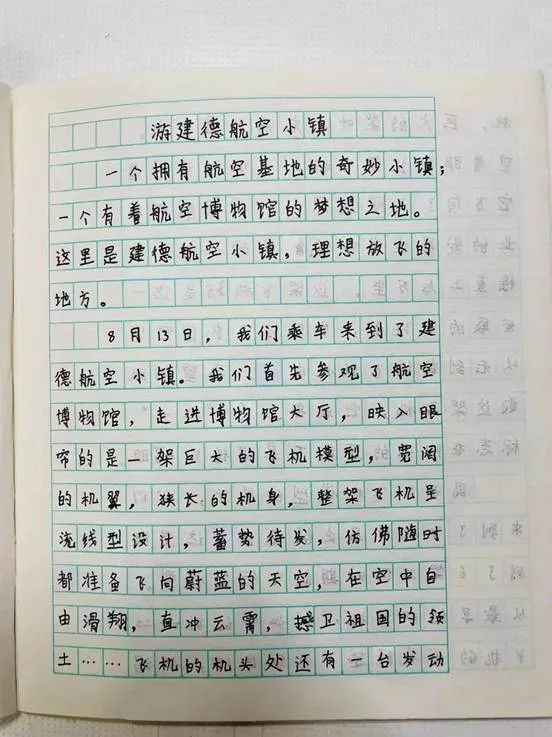 游建德航空小镇
一个拥有航空基地的奇妙小镇；
一个有着航空博物馆的梦想之地。
这里是建德航空小镇，理想放飞的
地方。
8月13日，我们乘车来到了建
德航空小镇。我们首先参观了航空
博物馆，走进博物馆大厅，映入眼
帘的是一架巨大的飞机模型，宽阔
的机翼，狭长的机身，整架飞机呈
流线型设计，蓄势待发，仿佛随时
都准备飞向蔚蓝的天空，在空中自
由滑翔，直冲云霄，撼卫祖国的领
土……飞机的机头处还有一台发动